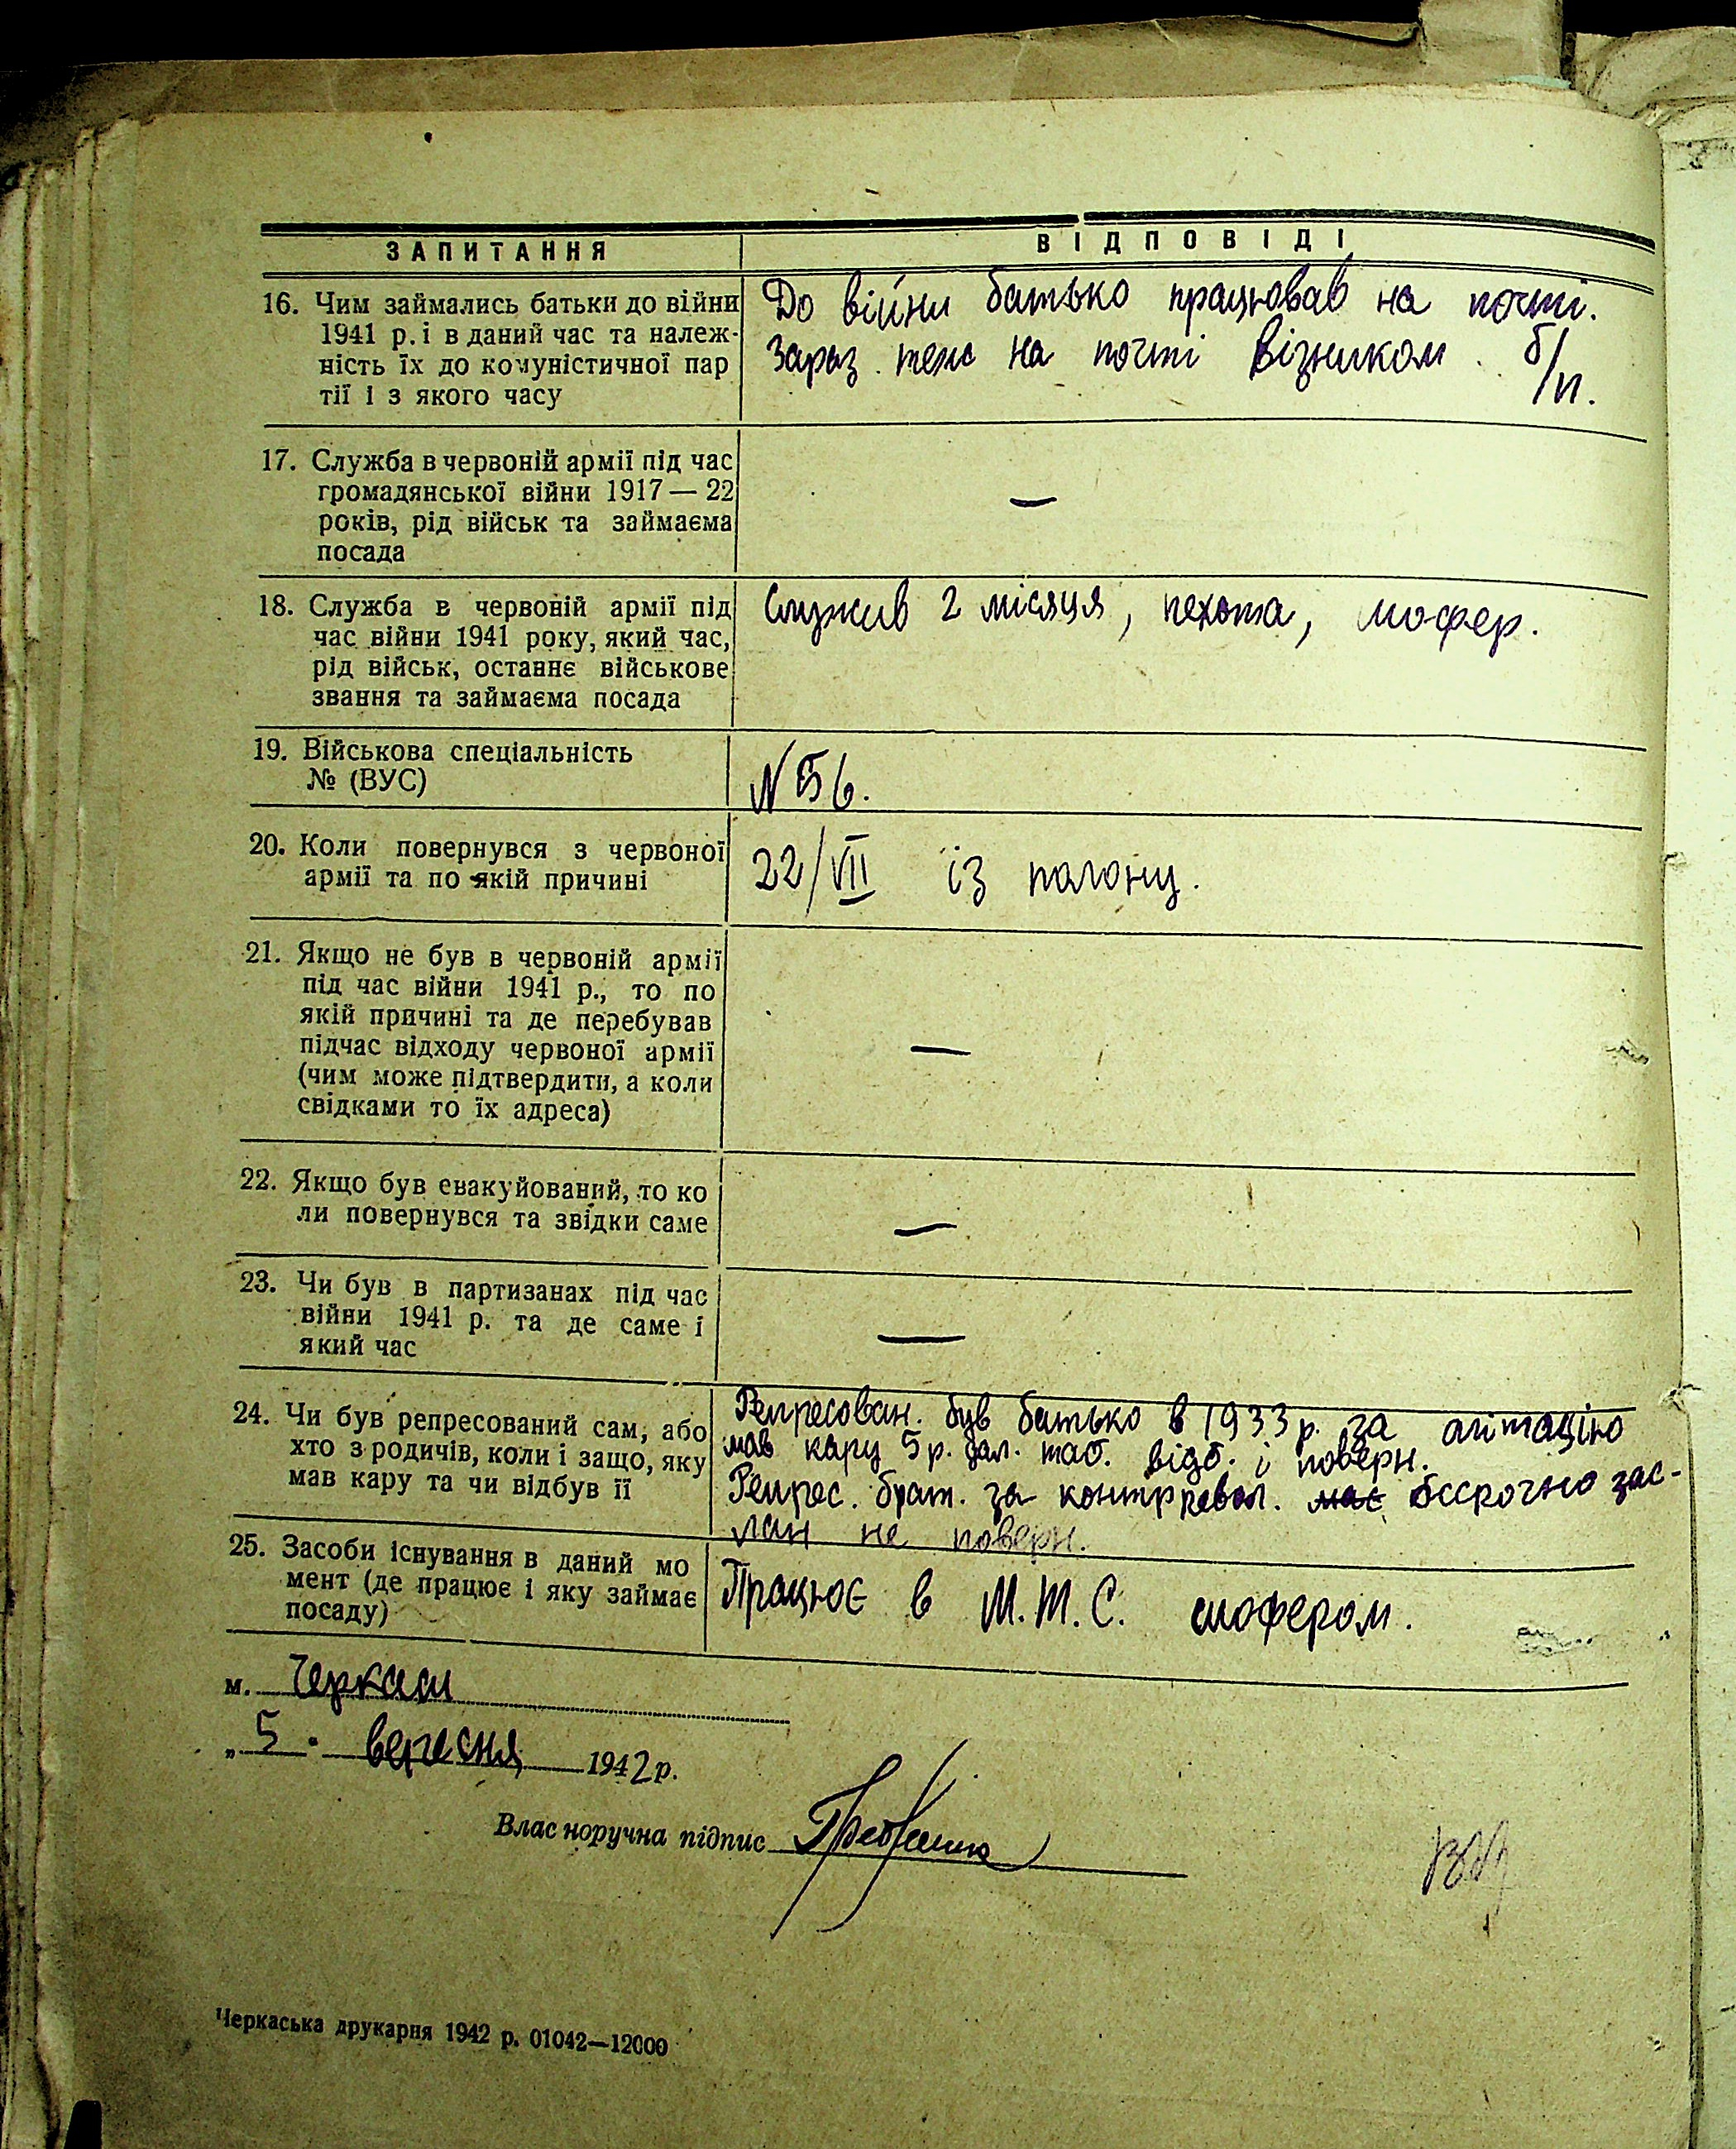 ЗАПИТАННЯ
ВІДПОВІДІ
16. Чим займались батьки до війни
1941 р. і в даний час та належ-
ність їх до комуністичної пар
тії і з якого часу
До війни батько працював на почті.
Зараз теж на почті візником. б/п.
17. Служба в червоній армії під час
громадянської війни 1917 — 22
років, рід військ та займаєма
посада
—
18. Служба в червоній армії під
час війни 1941 року, який час,
рід військ, останнє військове
звання та займаєма посада
Служив 2 місяця, пехота, шофер.
19. Військова спеціальність
№ (ВУС)
N 56.
20. Коли повернувся з червоної
армії та по якій причині
22/VII із полону.
21. Якщо не був в червоній армії
під час війни 1941 р., то по
якій причині та де перебував
підчас відходу червоної армії
(чим може підтвердити, а коли
свідками то їх адреса)
—
22. Якщо був евакуйований, то ко
ли повернувся та звідки саме
—
23. Чи був в партизанах під час
війни 1941 р. та де саме і
який час
—
24. Чи був репресований сам, або
хто з родичів, коли і защо, яку
мав кару та чи відбув її
Репресован. був батько в 1933 р. за агітацію
мав кару 5 р. дал. таб. відб. і поверн.
Репрес. брат. за контрревол. має бессрочно зас-
лан не поверн.
25. Засоби існування в даний мо
мент (де працює і яку займає
посаду)
Працює в М.Т.С. шофером.
м. Черкаси
„ 5 " вересня 1942 р.
Власноручна підпис
Черкаська друкарня 1942 р. 01042—12000